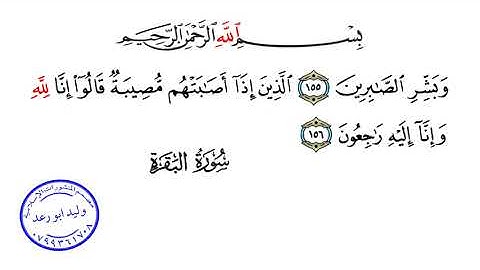 بِسْمِ ٱللَّهِ ٱلرَّحْمَٰنِ ٱلرَّحِيمِ
وَبَشِّرِ ٱلصَّٰبِرِينَ ١٥٥ ٱلَّذِينَ إِذَآ أَصَٰبَتْهُم مُّصِيبَةٌ قَالُوٓا۟ إِنَّا لِلَّهِ
وَإِنَّآ إِلَيْهِ رَٰجِعُونَ ١٥٦
سُورَةُ البَقَرَةِ
للمنشورات الإسلامية
وليد ابو رعد
٠٧٩٩٣٦١٧٠٨